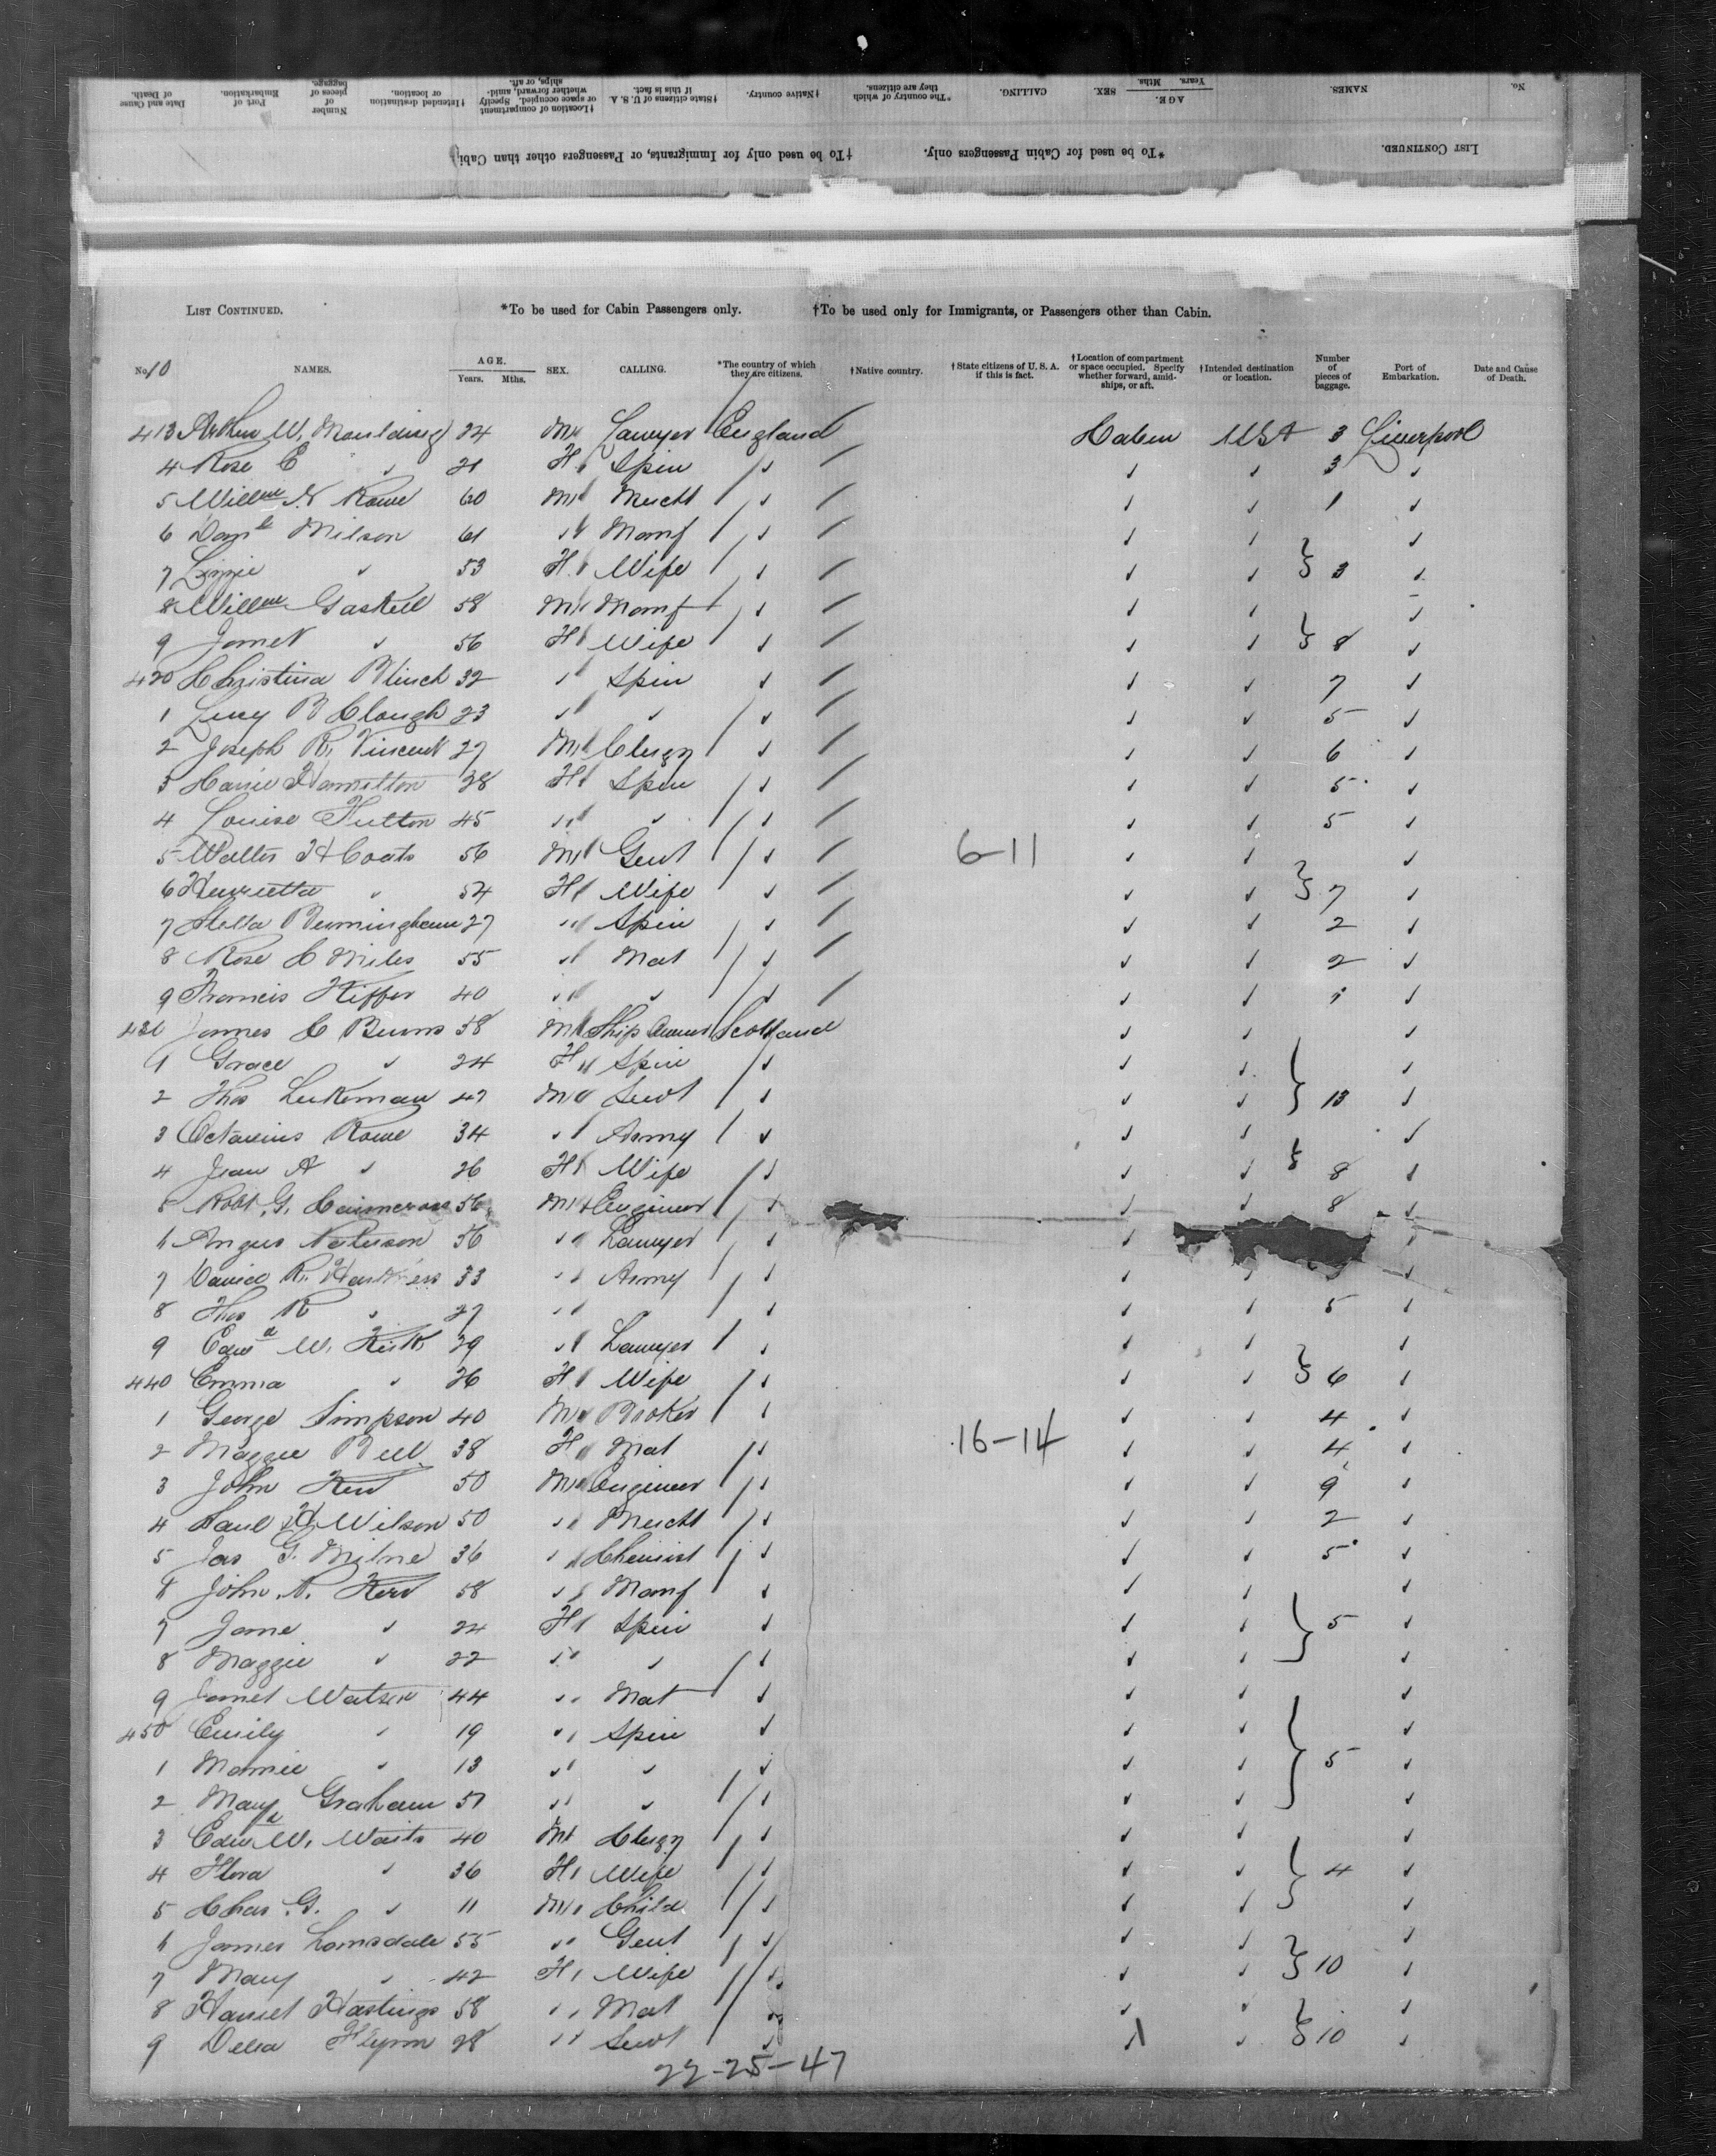 LIST CONTINUED. *To be used for Cabin Passengers only. †To be used only for Immigrants, or Passengers other than Cabi
No. NAMES. AGE. Years. Mths. SEX. CALLING. *The country of which they are citizens. †Native country. †State citizens of U. S. A. if this is fact. †Location of compartment or space occupied. Specify whether forward, amid-ships, or aft. †Intended destination or location. Number of pieces of baggage. Port of Embarkation. Date and Cause of Death.
LIST CONTINUED. *To be used for Cabin Passengers only. †To be used only for Immigrants, or Passengers other than Cabin.
No. 10 NAMES. AGE. Years. Mths. SEX. CALLING. *The country of which they are citizens. †Native country. †State citizens of U. S. A. if this is fact. †Location of compartment or space occupied. Specify whether forward, amid-ships, or aft. †Intended destination or location. Number of pieces of baggage. Port of Embarkation. Date and Cause of Death.
413 Arthur W. Moulding 24 M Lawyer England Cabin USA 3 Liverpool
4 Rose E 21 F Spin 3
5 Willm N Rowe 60 M Mercht 1
6 Danl Wilson 61 Manf
7 Lizzie 53 F Wife 3
8 Willm Gaskell 58 M Manf
9 Janet 56 F Wife 8
420 Christina Blinch 32 Spin 7
1 Lucy B Clough 23 5
2 Joseph R. Vincent 27 M Clergy 6
3 Hamilton 28 F Spin 5
4 Louise Hutton 45 5
5 Walter Coats 56 M Gent 6-11
6 Henrietta 54 F Wife 7
7 Stella Bermingham 27 Spin 2
8 Rose C Miles 55 Mat 2
9 Francis 40 1
430 James C Burns 58 M Ship Owner Scotland
1 Grace 24 F Spin
2 Thos Lukeman 47 M Servt 13
3 Octavius Rowe 34 Army
4 Jean A 26 F Wife 8
5 Robt. G. Cairncross 56 M Engineer 8
6 Angus Paterson 56 Lawyer
7 Daniel R. 33 Army
8 Thos R 27 5
9 Edwd W. Kirk 29 Lawyer
440 Emma 26 F Wife 6
1 George Simpson 40 M Broker 4
2 Maggie Bell 38 F Mat 16-14 4
3 John 50 M Engineer 9
4 Wilson 50 Mercht 2
5 Jas G. Milne 36 Chemist 5
6 John Kerr 58 Manf
7 Jane 24 F Spin 5
8 Maggie 22
9 Janet Watson 44 Mat
450 Emily 19 Spin
1 Mamie 13 5
2 Mary Graham 51
3 Edwd W. Waits 40 M Clergy
4 Flora 36 F Wife 4
5 Chas G. 11 M Child
6 James Lonsdale 55 Gent
7 Mary 42 F Wife 10
8 Harriet Hastings 58 Mat
9 Delia Flynn 28 Servt 10
22-25-47